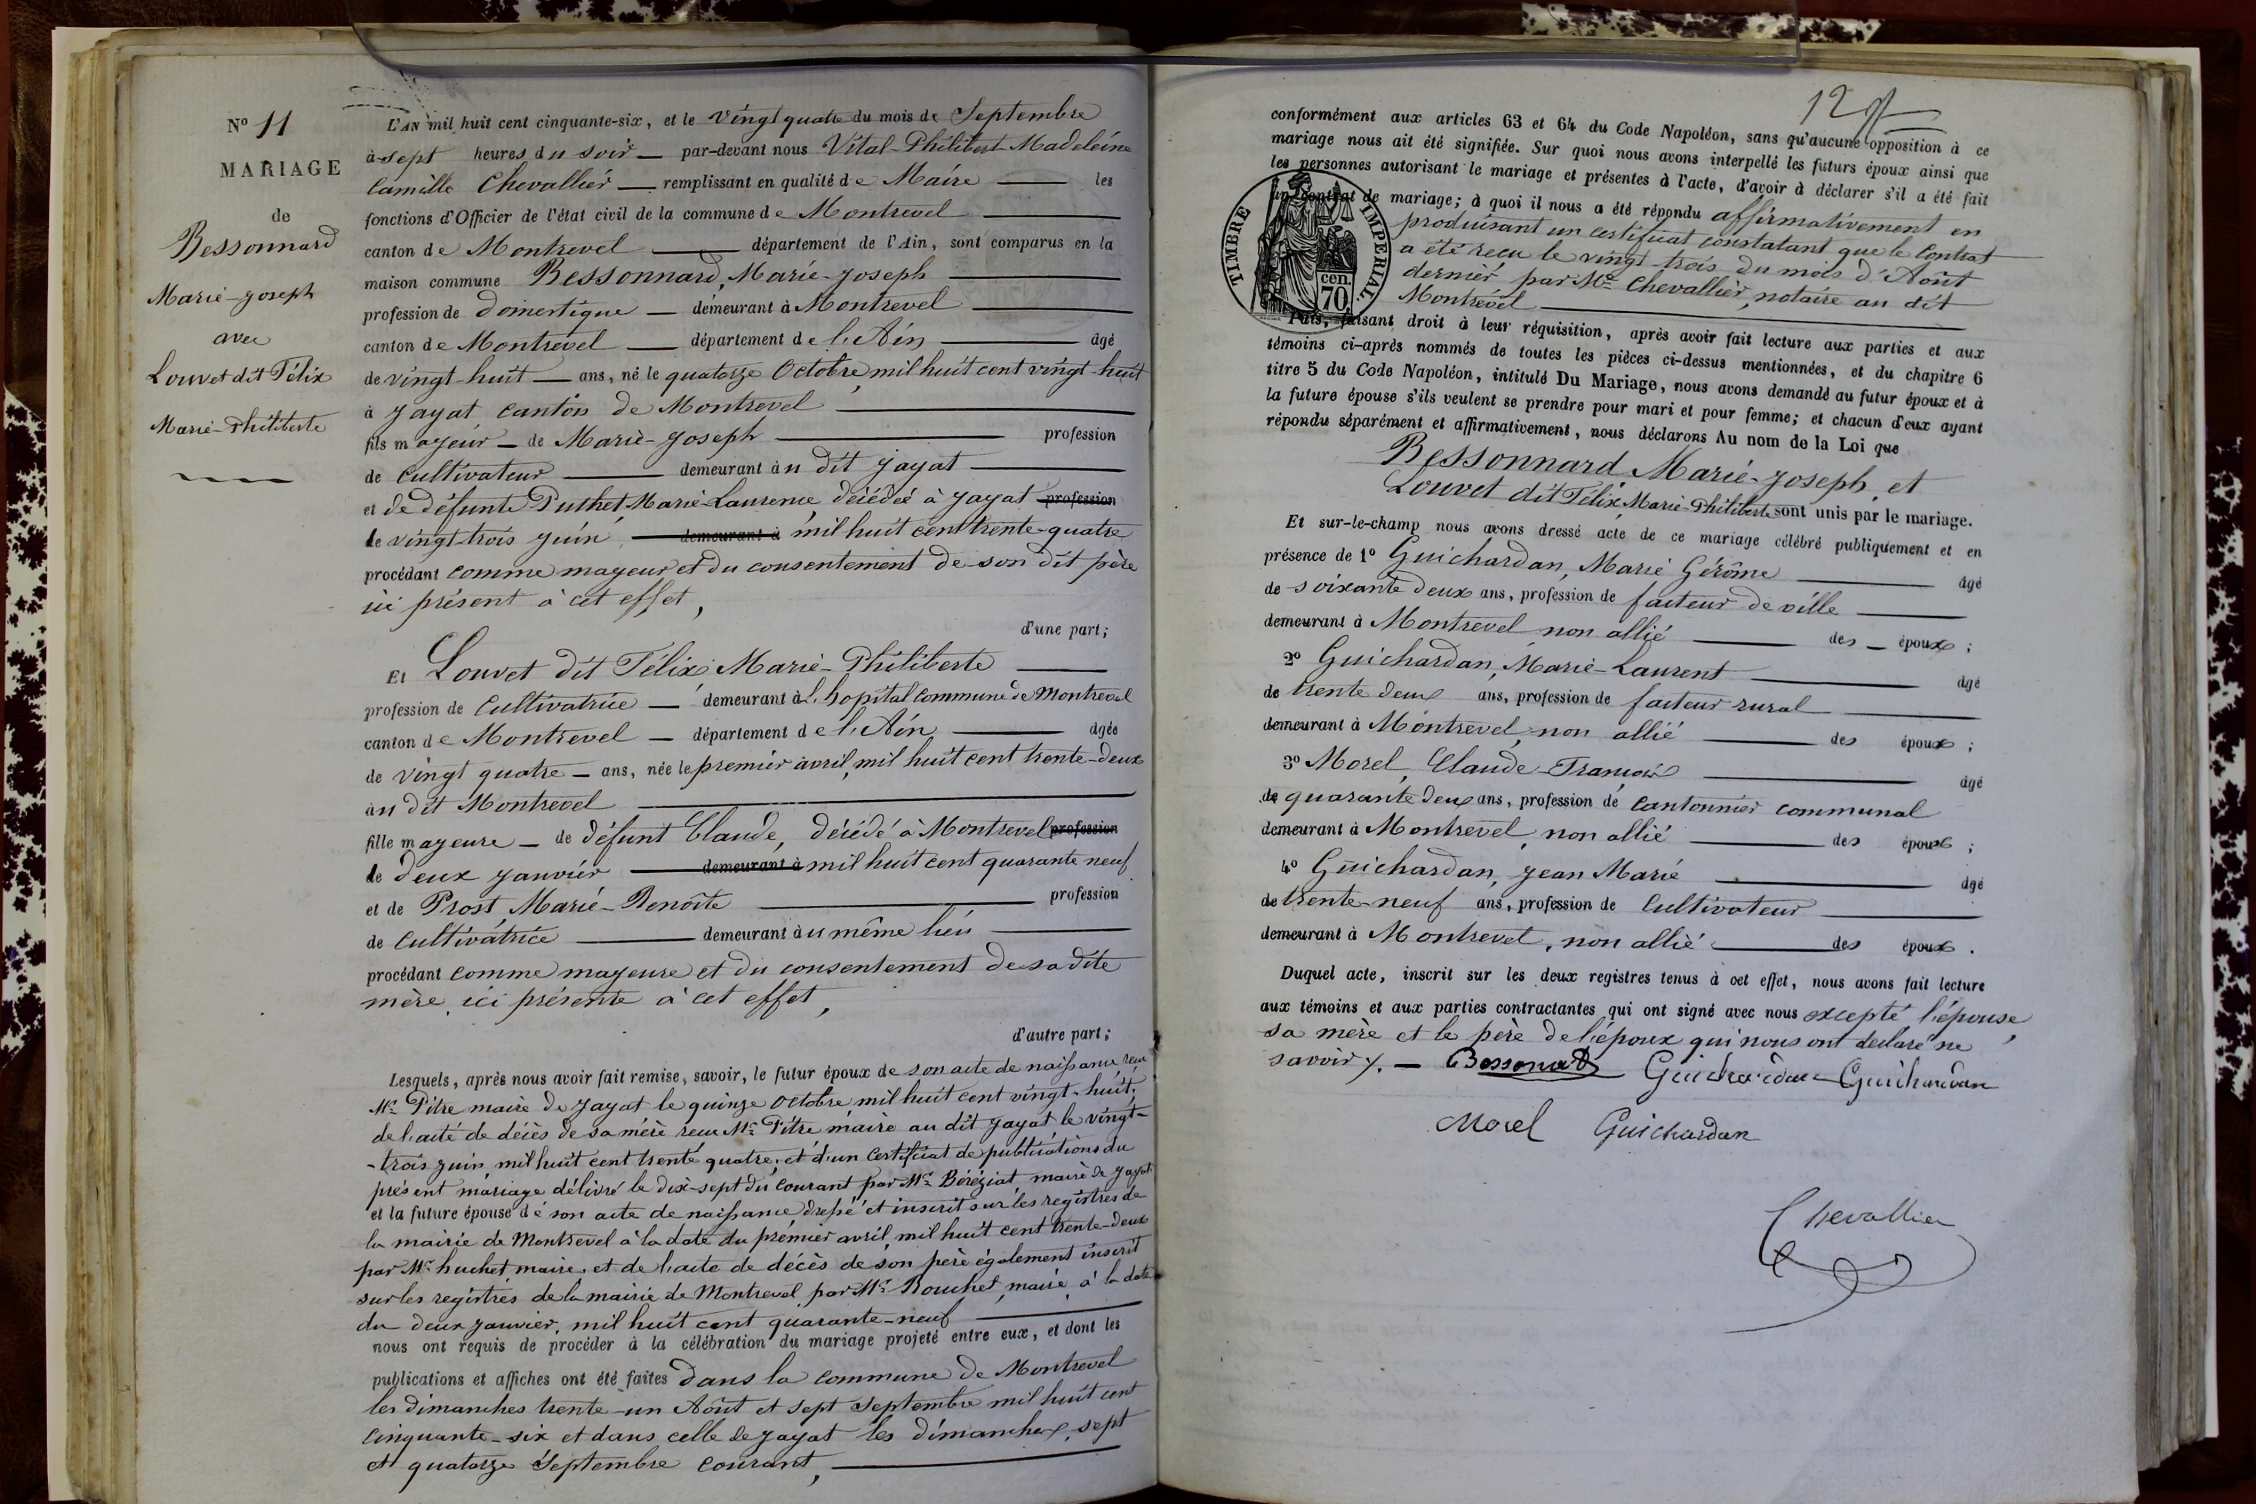 N° 11
MARIAGE
de
Bessonnard
Marie-Joseph
avec
Louvet dit Félix
Marie-Philiberte
L'AN mil huit cent cinquante-six, et le vingt quatre du mois de Septembre
à sept heures du soir — par-devant nous Vital-Philibert Madeleine
Camille Chevallier — remplissant en qualité de Maire — les
fonctions d'Officier de l'état civil de la commune de Montrevel —
canton de Montrevel — département de l'Ain, sont comparus en la
maison commune Bessonnard, Marie-Joseph —
profession de domestique — demeurant à Montrevel —
canton de Montrevel — département de l'Ain — âgé
de vingt-huit — ans, né le quatorze Octobre mil huit cent vingt-huit
à Jayat canton de Montrevel —
fils majeur — de Marie-Joseph — profession
de cultivateur — demeurant au dit Jayat —
et de défunte Puthet, Marie-Laurence, décédée à Jayat profession
le vingt-trois juin — demeurant à mil huit cent trente-quatre
procédant comme mayeur et du consentement de son dit père
ici présent à cet effet,
d'une part;
Et Louvet dit Félix Marie-Philiberte —
profession de Cultivatrice — demeurant à L'hopital commune de Montrevel
canton de Montrevel — département de l'Ain — âgée
de vingt quatre — ans, née le premier avril, mil huit cent trente-deux
au dit Montrevel —
fille mayeure — de défunt Claude, décédé à Montrevel profession
le deux janvier — demeurant à mil huit cent quarante neuf
et de Prost, Marie-Benoite — profession
de cultivatrice — demeurant au même lieu —
procédant comme mayeure et du consentement de sa dite
mère ici présente à cet effet,
d'autre part;
Lesquels, après nous avoir fait remise, savoir, le futur époux de son acte de naissance reçu
Mr. Pitre maire de Jayat le quinze Octobre mil huit cent vingt-huit,
de l'acte de décès de sa mère reçu Mr. Pitre maire au dit Jayat le vingt-
-trois juin, mil huit cent trente quatre; et d'un Certificat de publications du
présent mariage délivré le dix-sept du courant par Mr. Béréziat, maire de Jayat
et la future épouse de son acte de naissance dressé et inscrit sur les registres de
la mairie de Montrevel à la date du premier avril, mil huit cent trente-deux
par Mr. huchet maire, et de l'acte de décès de son père également inscrit
sur les registres de la mairie de Montrevel par Mr. Bouchet, maire, à la date
du deux janvier, mil huit cent quarante-neuf —
nous ont requis de procéder à la célébration du mariage projeté entre eux, et dont les
publications et affiches ont été faites dans la commune de Montrevel
les dimanches trente-un Août et sept Septembre mil huit cent
cinquante-six et dans celle de Jayat les dimanches, sept
et quatorze Septembre courant, —
conformément aux articles 63 et 64 du Code Napoléon, sans qu'aucune opposition à ce
mariage nous ait été signifiée. Sur quoi nous avons interpellé les futurs époux ainsi que
les personnes autorisant le mariage et présentes à l'acte, d'avoir à déclarer s'il a été fait
un contrat de mariage; à quoi il nous a été répondu affirmativement en
produisant un certificat constatant que le Contrat
a été reçu le vingt-trois du mois d'Août
dernier par Me. Chevallier, notaire au dit
Montrevel —
TIMBRE IMPERIAL
cen.
70
Puis, faisant droit à leur réquisition, après avoir fait lecture aux parties et aux
témoins ci-après nommés de toutes les pièces ci-dessus mentionnées, et du chapitre 6
titre 5 du Code Napoléon, intitulé Du Mariage, nous avons demandé au futur époux et à
la future épouse s'ils veulent se prendre pour mari et pour femme; et chacun d'eux ayant
répondu séparément et affirmativement, nous déclarons Au nom de la Loi que
Bessonnard Marie-Joseph et
Louvet dit Félix, Marie-Philiberte sont unis par le mariage.
Et sur-le-champ nous avons dressé acte de ce mariage célébré publiquement et en
présence de 1° Guichardan, Marie Gérôme — âgé
de soixante deux ans, profession de facteur de ville —
demeurant à Montrevel non allié — des — époux;
2° Guichardan, Marie-Laurent — âgé
de trente deux ans, profession de facteur rural —
demeurant à Montrevel, non allié — des époux;
3° Morel, Claude-François — âgé
de quarante deux ans, profession de cantonnier communal
demeurant à Montrevel, non allié — des époux;
4° Guichardan, Jean Marie — âgé
de trente-neuf ans, profession de Cultivateur —
demeurant à Montrevel, non allié — des époux.
Duquel acte, inscrit sur les deux registres tenus à cet effet, nous avons fait lecture
aux témoins et aux parties contractantes qui ont signé avec nous excepté l'épouse,
sa mère et le père de l'époux qui nous ont déclaré ne
savoir y. — Bessonard Guichardan Guichardan
Morel Guichardan
Chevallier